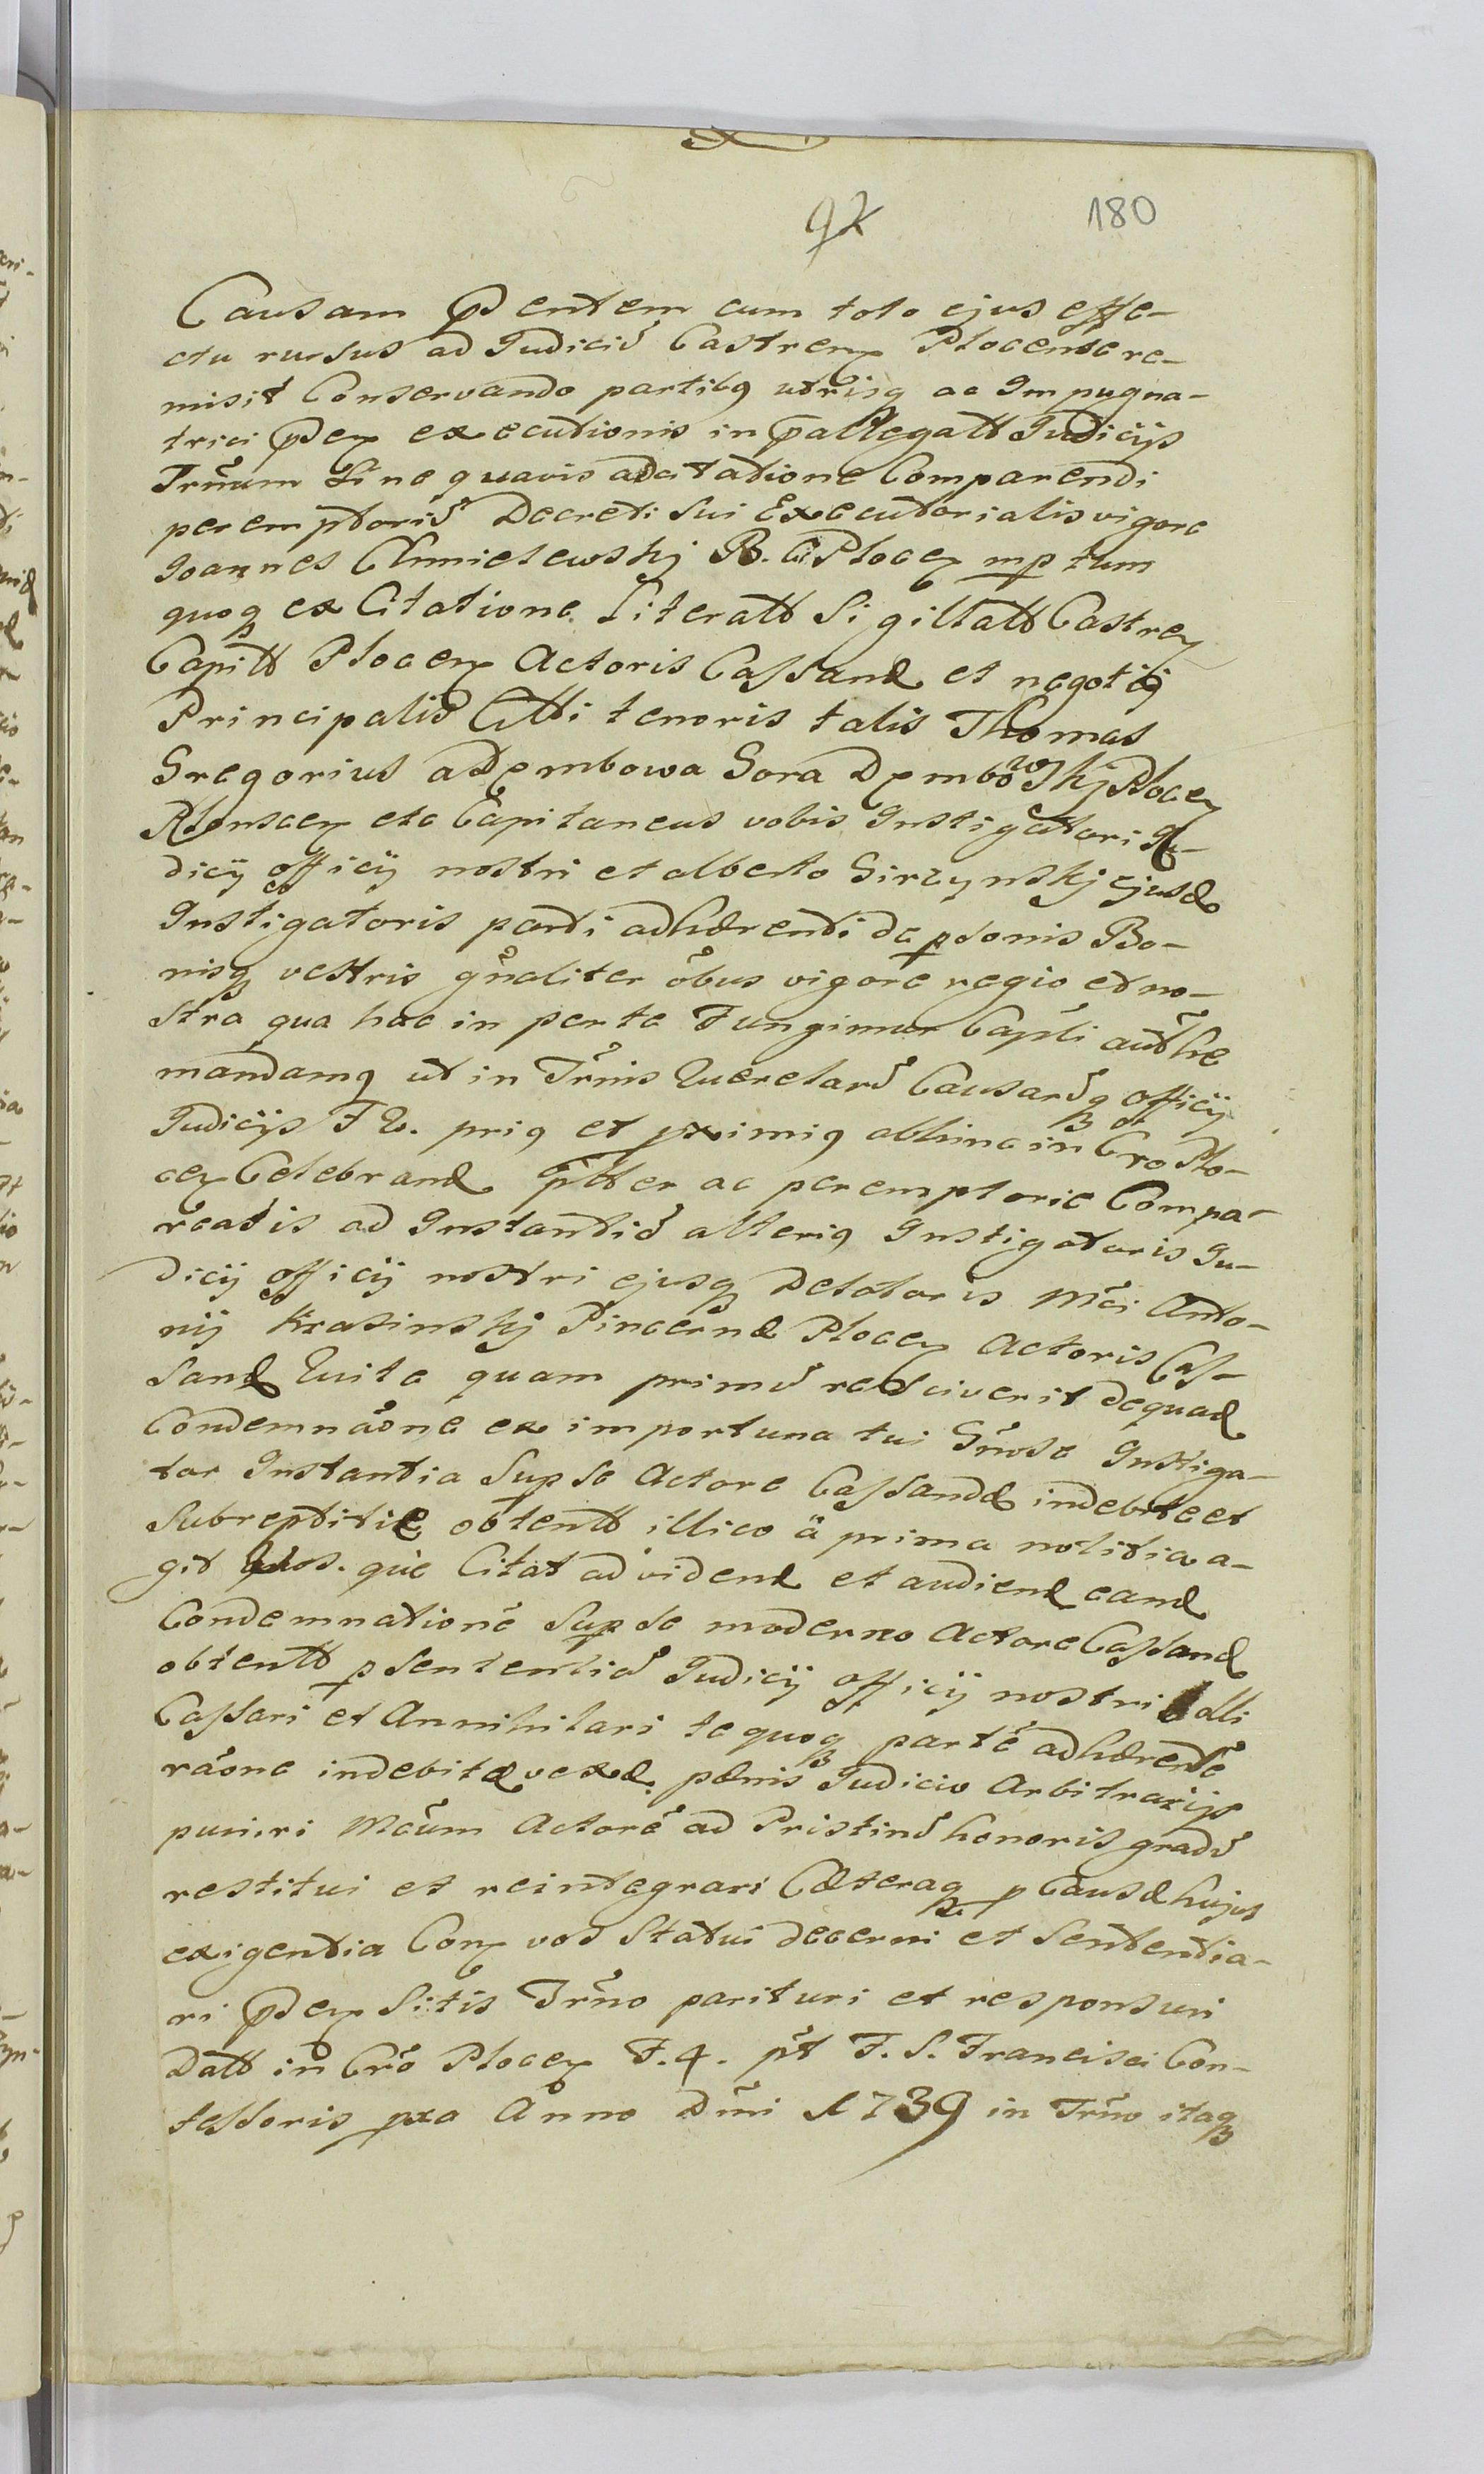 92 180
Causam pdentem cum toto ejus effe-
ctu rursus ad Judiciũ Castren Plocense re-
misit Conservando partibq utrisq ac Impugna-
trici pden executionis in pallegatt Judicijs
Trũum sine quavis adcitatione Comparendi
peremptoriũ Decreti sui Executorialis vigore
Joannes Chmielewskj R. C. Plocen mp tum
quoq ex Citatione Literatt Sigillatt Castren
Capitt Plocen Actoris Cassand et negotij
Principalis Citti tenoris talis Thomas
Gregorius a Dembowa Gora Dembowskj Plocen
Plonscen etc Capitaneus vobis Instigatori Ju-
dicij officij nostri et alberto Girzynskj ejusd
Instigatoris parti adhærenti de psonis Bo-
nisq vestris gñaliter õbus vigore regio et no-
stra qua hac in parte Fungimur Capĩli authe
mandamq ut in Trĩnis Querelarũ Causarũq officij
Judicijs F 2. priq et pximiq abhinc in Cro Plo-
cen Celebrand pĩtter ac peremptorie Compa-
reatis ad Instantiã alteriq Instigatoris Ju-
dicij officij nostri ejusq Delatoris Mci Anto-
nij Krasinskj Pincernæ Plocen Actoris Cas-
sand Qui te quam primũ resciverit de quad
Condemnãone ex importuna tui Gñose Instiga-
tor Instantia Sup se Actore Cassandd indebite et
Subreptitie obtentt illico ã prima notitia a-
git vos. que Citat ad vidend et audiend eand
Condemnationẽ Sup se moderno Actore Cassand
obtentt p sententiã Judicij officij nostri tolli
Cassari et Annihilari te quoq partẽ adhærentẽ
rãone indebitæ vexæ. pœnis Judicio Arbitrarijs
puniri Mcũm Actorẽ ad Pristinũ honoris gradũ
restitui et reintegrari Cæteraq p Causæ hujus
exigentia Con vos Statui decerni et Sententia-
ri pden Sitis Trĩno parituri et responsuri
Datt in Crõ Plocen F. 4. pt F. S. Francisci Con-
fessoris pxa Anno Dñi 1739 in Trĩno itaq